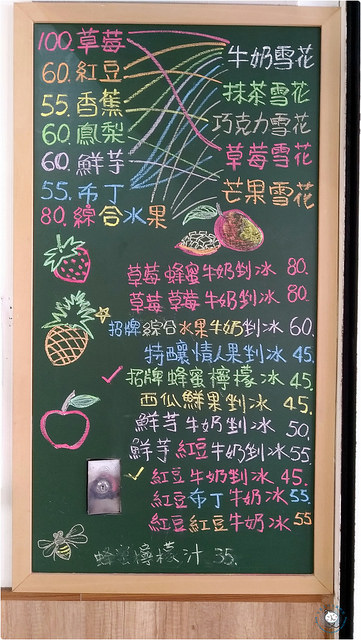 100.草莓
60.紅豆
55.香蕉
60.鳳梨
60.鮮芋
55.布丁
80.綜合水果
牛奶雪花
抹茶雪花
巧克力雪花
草莓雪花
芒果雪花
草莓蜂蜜牛奶剉冰 80.
草莓草莓牛奶剉冰 80.
招牌綜合水果牛奶剉冰 60.
特釀情人果剉冰 45.
招牌蜂蜜檸檬冰 45.
西瓜鮮果剉冰 45.
鮮芋牛奶剉冰 50.
鮮芋紅豆牛奶剉冰 55
紅豆牛奶剉冰 45.
紅豆布丁牛奶冰 55
紅豆紅豆牛奶冰 55
蜂蜜檸檬汁 35.